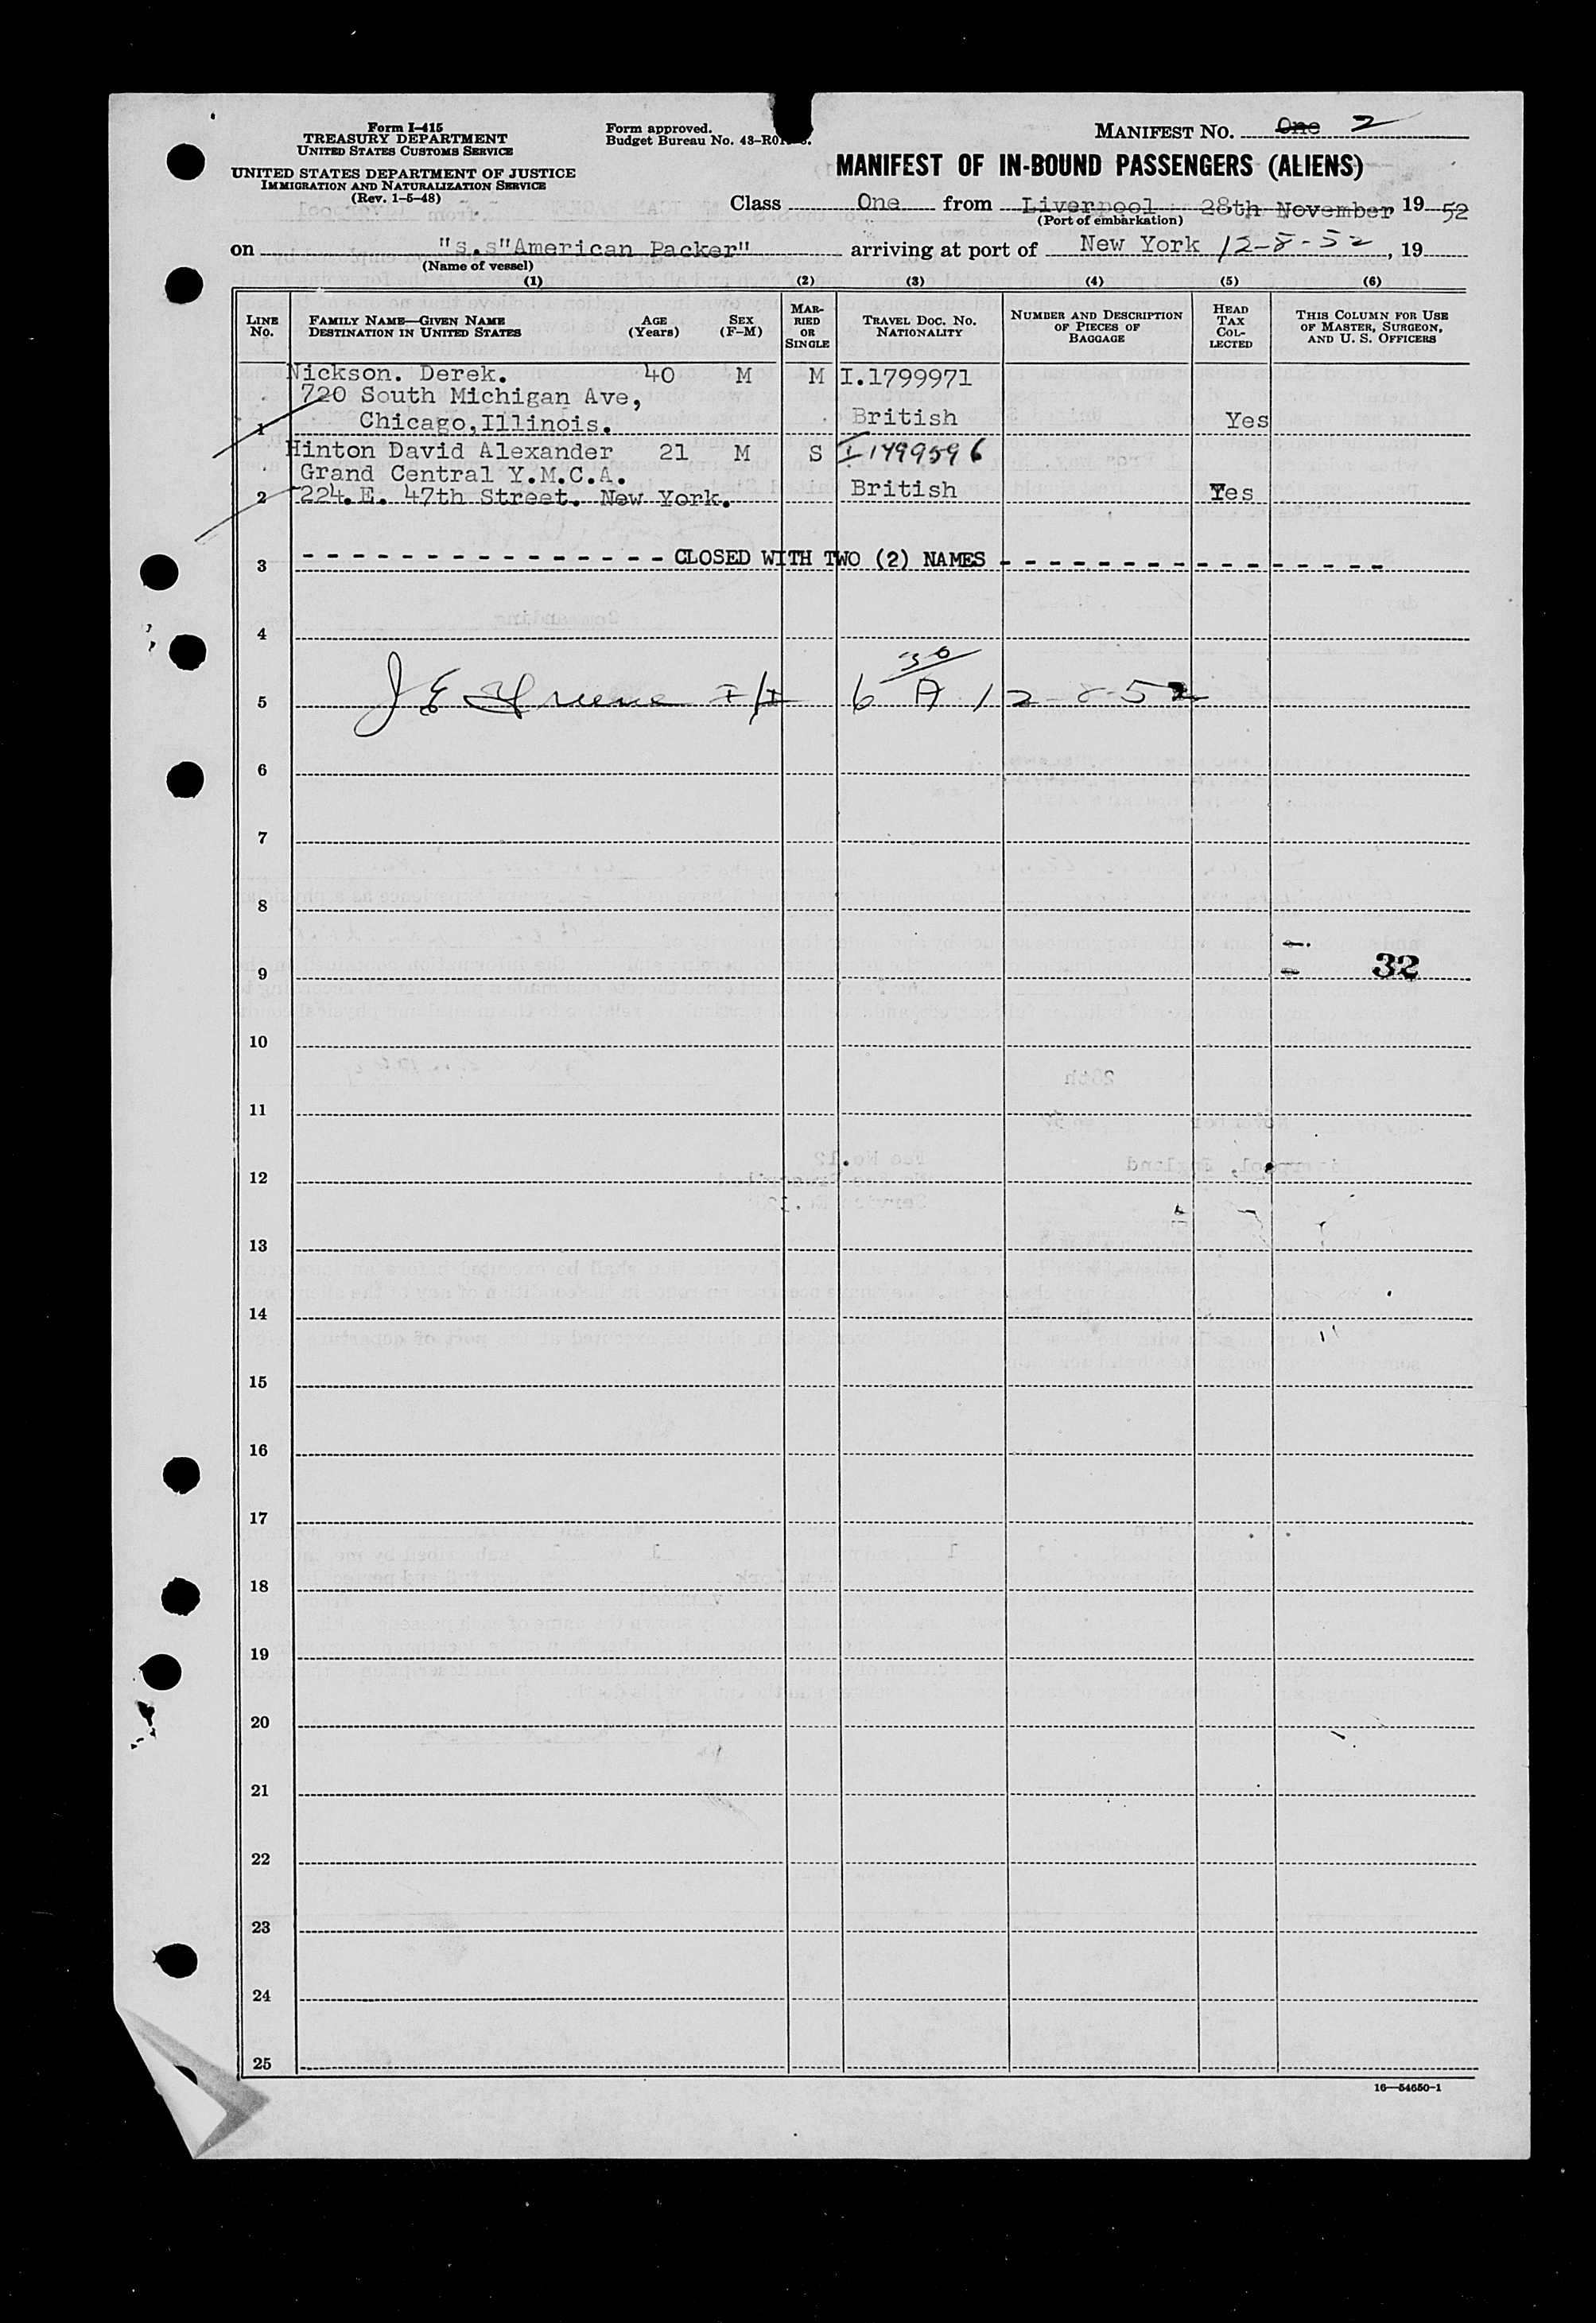 Form I-415
TREASURY DEPARTMENT
UNITED STATES CUSTOMS SERVICE
UNITED STATES DEPARTMENT OF JUSTICE
IMMIGRATION AND NATURALIZATION SERVICE
(Rev. 1-5-48)
Form approved.
Budget Bureau No. 43-R0
MANIFEST NO. One 2
MANIFEST OF IN-BOUND PASSENGERS (ALIENS)
Class One from Liverpool 28th November 19 52
(Port of embarkation)
on "s.s"American Packer" arriving at port of New York 12-8-52, 19
(Name of vessel)
(1) (2) (3) (4) (5) (6)
LINE No. FAMILY NAME—GIVEN NAME DESTINATION IN UNITED STATES AGE (Years) SEX (F-M) MARRIED OR SINGLE TRAVEL DOC. NO. NATIONALITY NUMBER AND DESCRIPTION OF PIECES OF BAGGAGE HEAD TAX COLLECTED THIS COLUMN FOR USE OF MASTER, SURGEON, AND U. S. OFFICERS
Nickson. Derek. 40 M M I.1799971
720 South Michigan Ave,
1 Chicago,Illinois. British Yes
Hinton David Alexander 21 M S I 1499596
Grand Central Y.M.C.A.
2 224.E. 47th Street. New York. British Yes
3 - - - - - - - - - - - - - - - - - CLOSED WITH TWO (2) NAMES - - - - - - - - - - - - - - - -
4
5 J E Greene I/I 6 30 A 12-8-52
6
7
8
9 32
10
11
12
13
14
15
16
17
18
19
20
21
22
23
24
25
16—54650-1